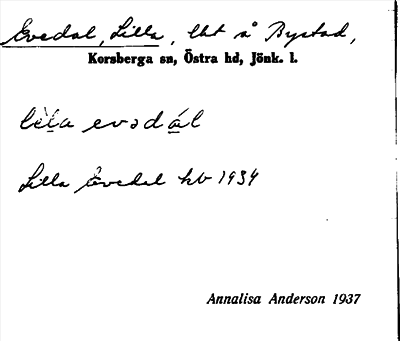 Evedal, Lilla, lht å Bystad,
Korsberga sn, Östra hd, Jönk. l.
lìla evədál
Lilla Evedal hb 1934
Annalisa Anderson 1937